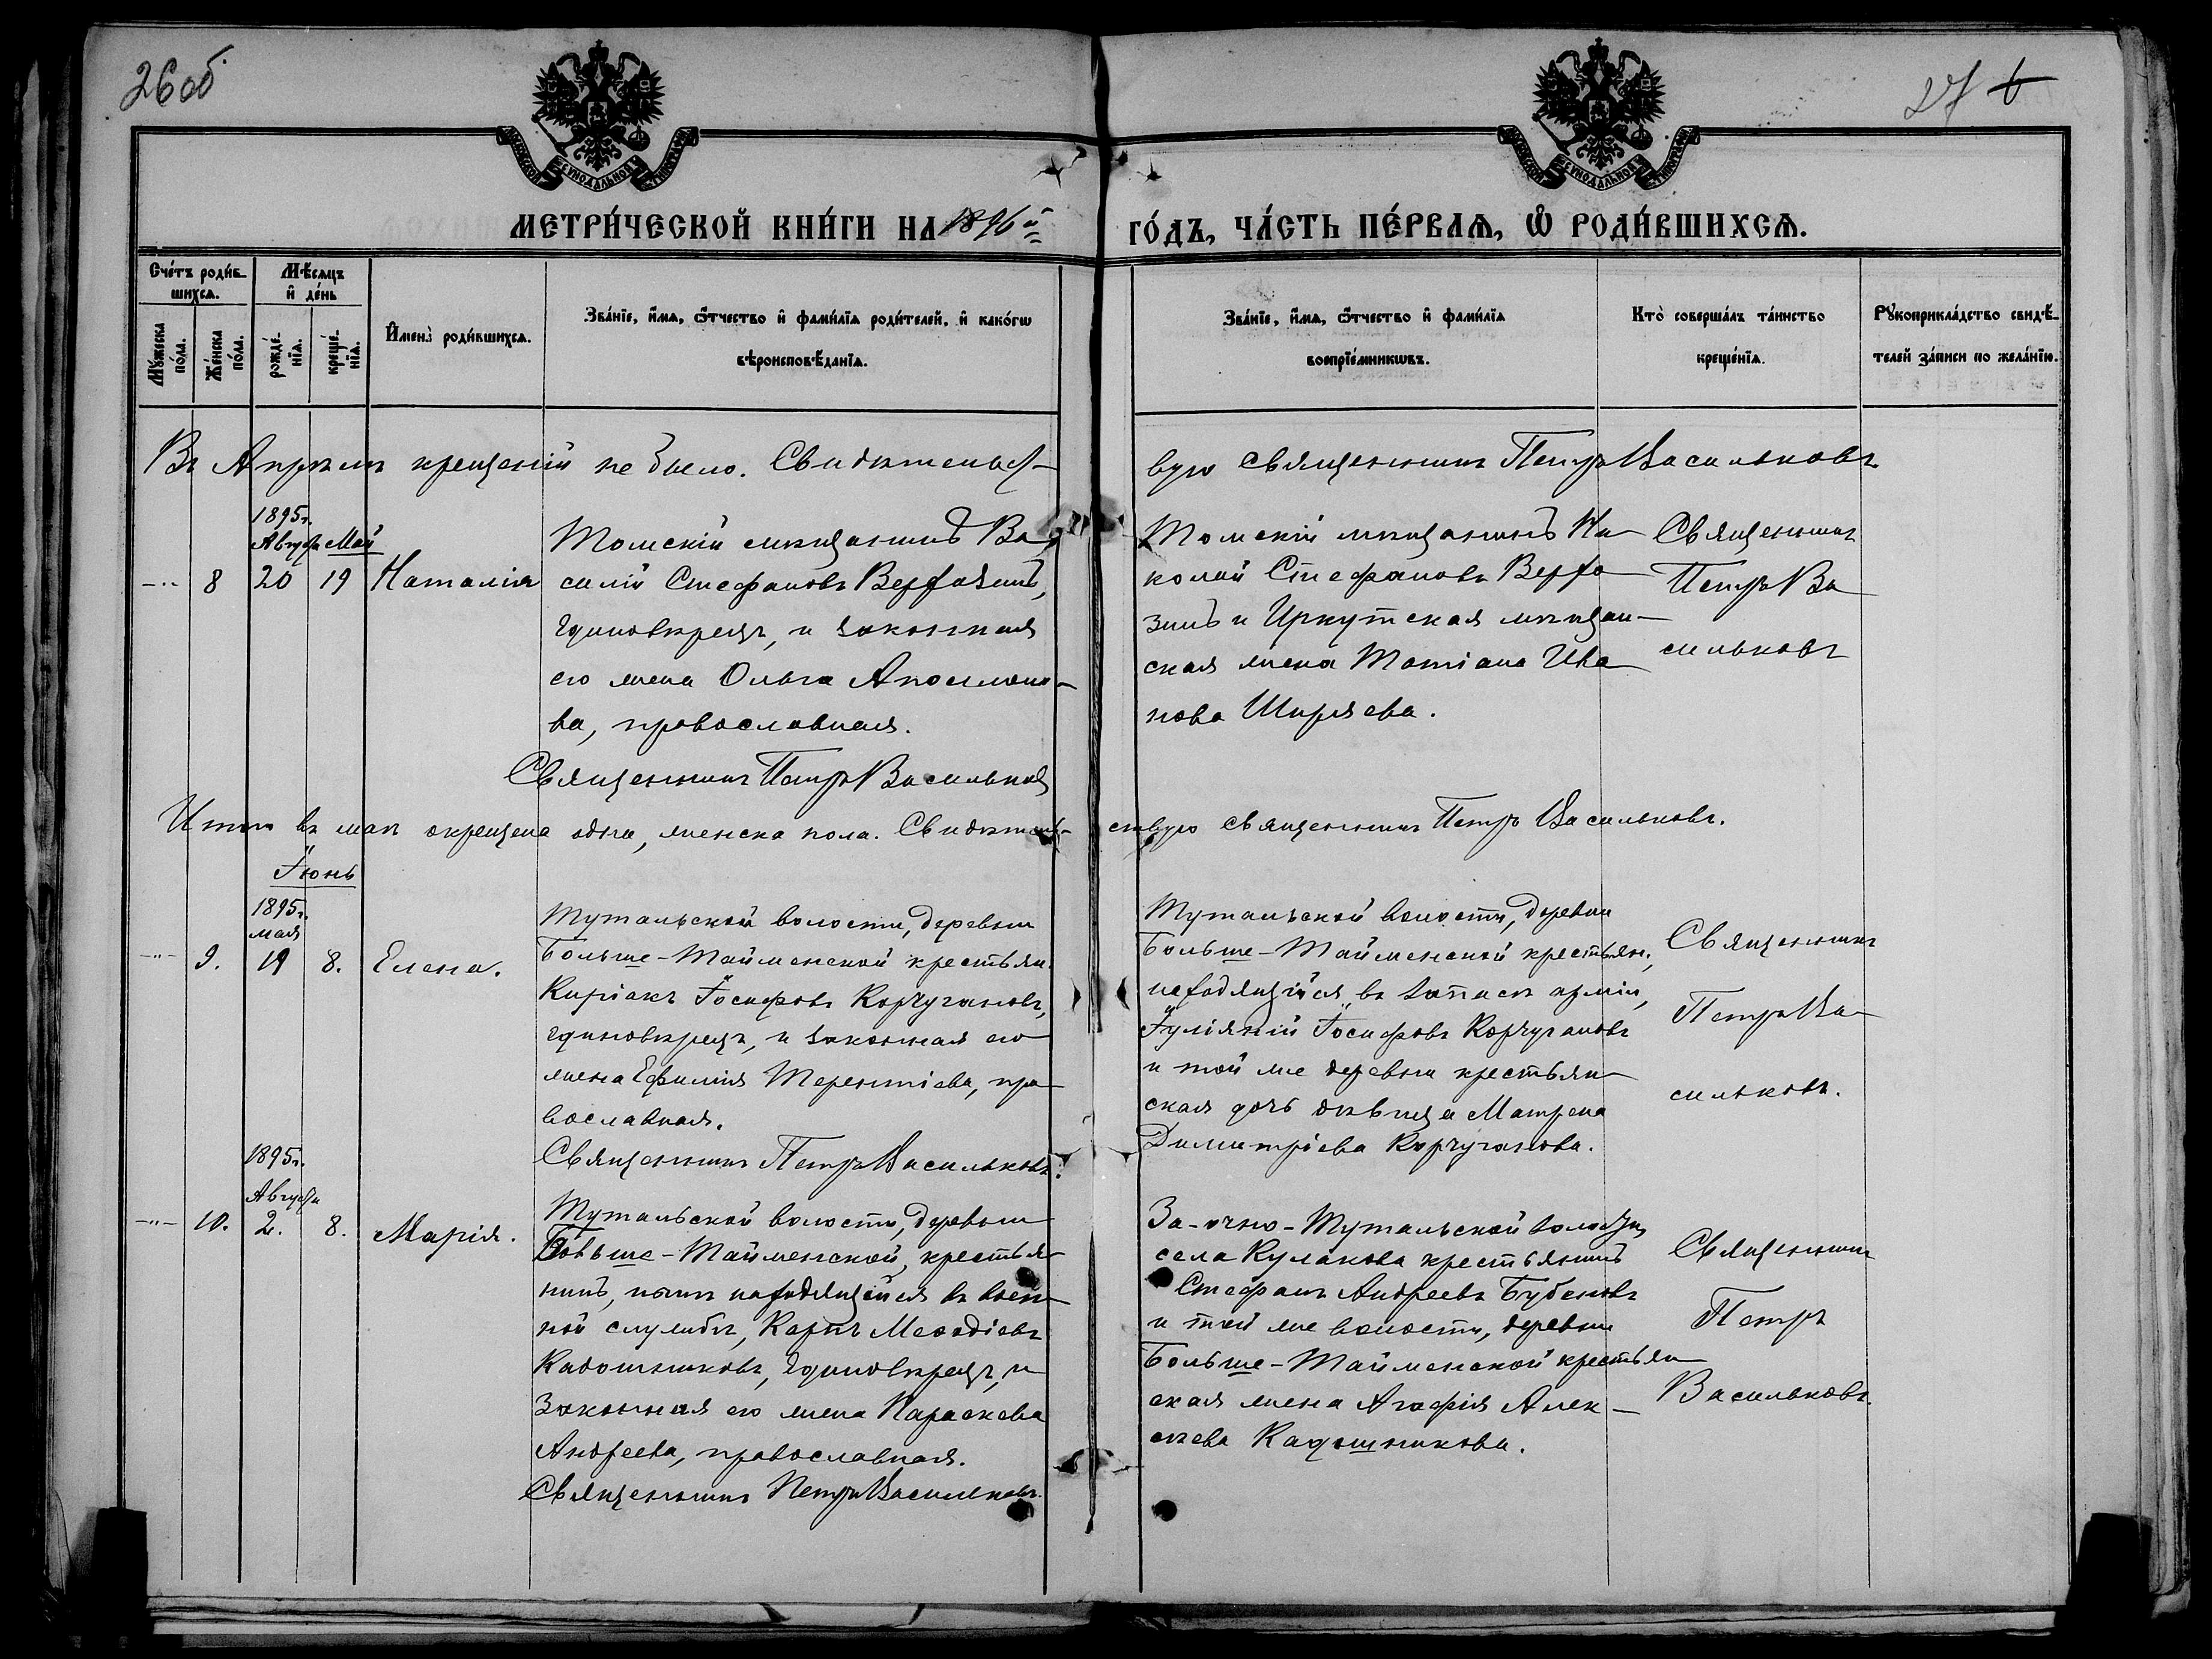 26 об
27
МЕТРИ́ЧЕСКОЙ КНИ́ГИ НА 1896й
ГО́ДЪ, ЧА́СТЬ ПЕ́РВАѦ, Ѽ РОДИ́ВШИХСѦ.
Сче́тъ роди́в-
шихсѧ.
Мꙋ́жеска по́ла.
Же́нска по́ла.
Мѣ́сѧцъ
и҆ де́нь
рожде́-
нїѧ.
креще́-
нїѧ.
И҆мена̀ роди́вшихсѧ.
Зва́нїе, и҆́мѧ, ѻ҆́тчество и҆ фамі́лїа роди́телей, и҆ како́гѡ
вѣроисповѣ́данїѧ.
Зва́нїе, и҆́мѧ, ѻ҆́тчество и҆ фамі́лїа
воспрїе́мникѡвъ.
Кто̀ соверша́лъ та́инство
креще́нїѧ.
Рꙋкоприкла́дство свидѣ́-
телей за́писи по жела́нїю.
Въ Апрѣлѣ крещеній не было. Свидѣтельст-
вую священникъ Петръ Васильковъ
1895г.
Августа Май
-"- 8 20 19 Наталія
Томскій мѣщанинъ Ва-
силій Стефановъ Верхозинъ,
единовѣрецъ, и законная
его жена Ольга
ва, православная.
Священникъ Петръ Васильковъ
Томскій мѣщанинъ Ни-
колай Стефановъ Верхо-
зинъ и Иркутская мѣщан-
ская жена Татіана Ива-
нова Ширяева.
Священникъ
Петръ Ва-
сильковъ
Итого въ маѣ окрещена одна, женска пола. Свидѣтель-
ствую священникъ Петръ Васильковъ.
Іюнь
1895г.
мая
-"- 9. 19 8. Елена.
Тутальской волости, деревни
Больше-Тайменской крестьян.
Киріакъ Іосифовъ Корчугановъ,
единовѣрецъ, и законная его
жена Ефимія Терентіева, пра-
вославная.
Священникъ Петръ Васильковъ.
Тутальской волости, деревни
Больше-Тайменской крестьян.,
находящійся въ запасѣ арміи,
Іуліяній Іосифовъ Корчугановъ
и той же деревни крестьян-
ская дочь дѣвица Матрена
Димитріева Корчуганова.
Священникъ
Петръ Ва-
сильковъ.
1895г.
Августа
-"- 10. 2. 8. Марія.
Тутальской волости, деревни
Больше-Тайменской, крестья-
нинъ, нынѣ находящійся въ воен-
ной службѣ, Карпъ Меѳодіевъ
Кадошниковъ, единовѣрецъ, и
законная его жена Параскева
Андреева, православная.
Священникъ Петръ Васильковъ.
За-очно-Тутальской волости,
села Кулакова крестьянинъ
Стефанъ Андреевъ Бубеновъ
и той же волости, деревни
Больше-Тайменской крестьян-
ская жена Агафія Алек-
сѣева Кадошникова.
Священникъ
Петръ
Васильковъ.